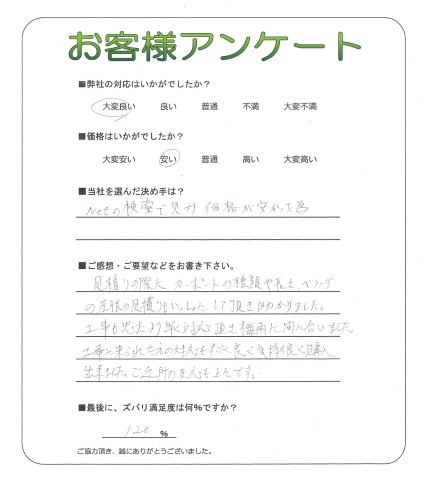 お客様アンケート
■弊社の対応はいかがでしたか?
大変良い 良い 普通 不満 大変不満
■価格はいかがでしたか?
大変安い 安い 普通 高い 大変高い
■当社を選んだ決め手は?
Netの検索で見れ 価格が安かった為
■ご感想・ご要望などをお書き下さい。
見積りの際に カーポートの種類や長さ、ベランダ
の屋根の見積りもいっしょにして頂き助かりました。
工事も思ったより早く 頂き梅雨に間に合いました。
工事に来られた方の対応もすごく良く気持良く購入
出来ました。ご近所の
■最後に、ズバリ満足度は何%ですか?
120 %
ご協力頂き、誠にありがとうございました。